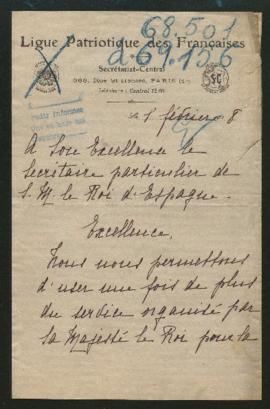 68.501
269.156
Ligue Patriotique des Françaises
Secrétariat-Central
PARIS
Téléphone: Central
SC
le 1 février 8
A Son Excellence le
Secrétaire particulier de
S. M. le Roi d'Espagne.
Excellence,
Nous nous permettons
d'user une fois de plus
du service organisé par
sa Majesté le Roi pour la